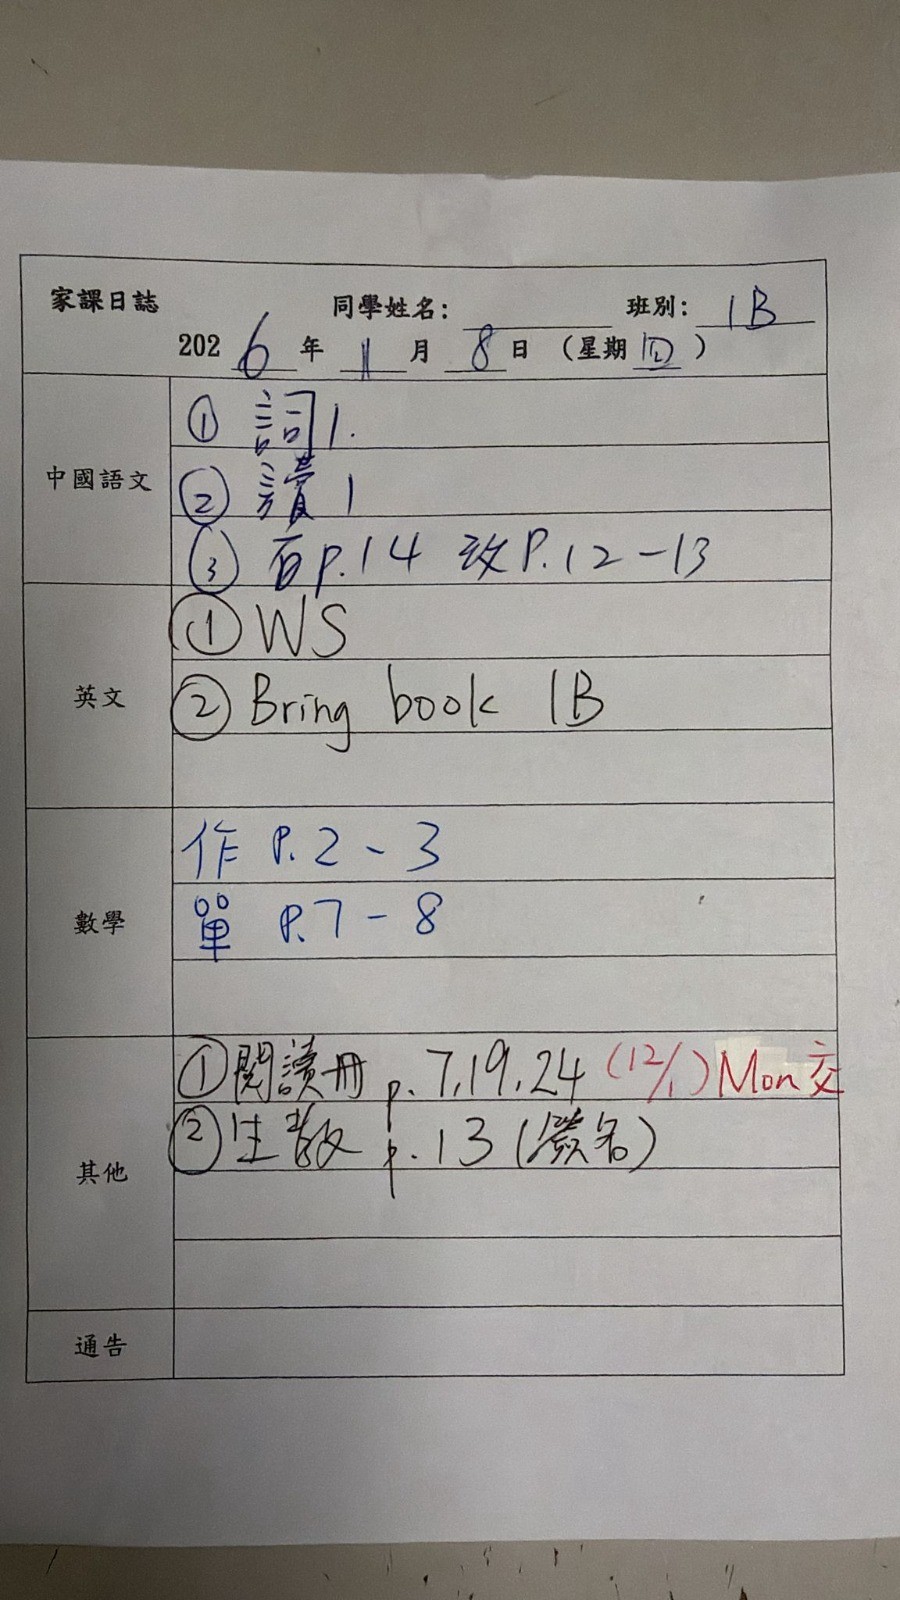 家課日誌 同學姓名: 班別: 1B
2026年1月8日(星期四)
中國語文
① 詞1.
② 讀1
③ 百p.14 改P.12-13
英文
① WS
② Bring book 1B
數學
作 P.2-3
單 P.7-8
其他
① 閱讀冊 p.7,19,24 (12/1) Mon交
② 生教 p.13 (簽名)
通告